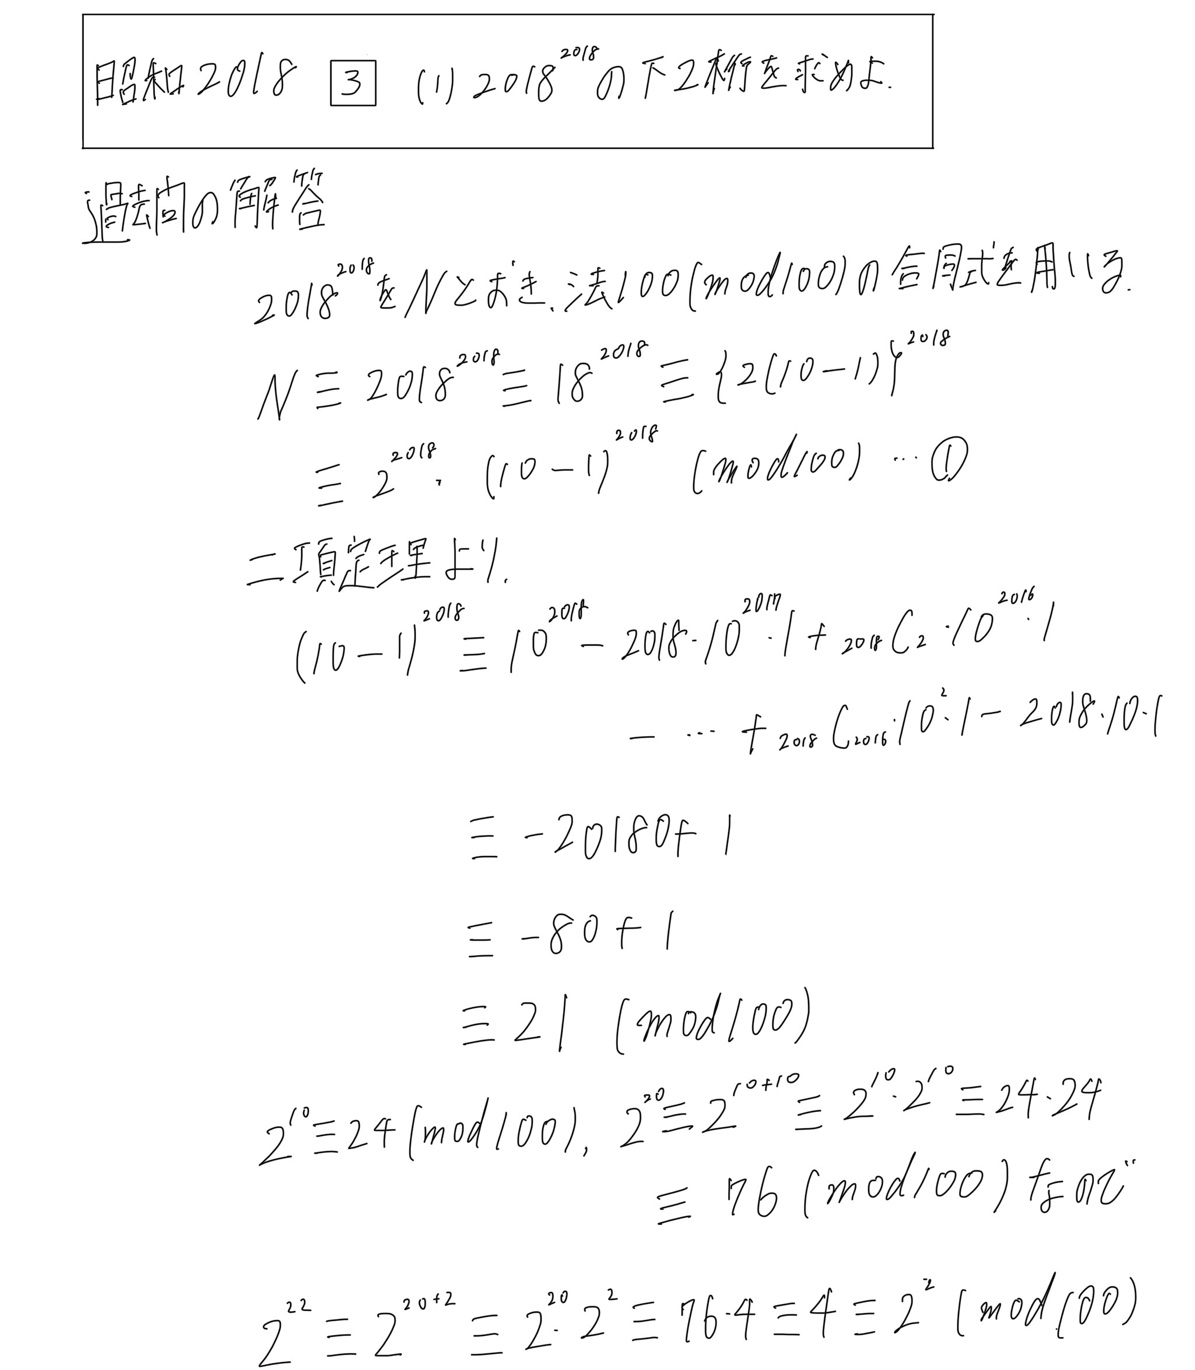 昭和2018 3 (1) 2018^2018の下2桁を求めよ.
過去問の解答
2018^2018をNとおき、法100(mod100)の合同式を用いる.
N≡2018^2018≡18^2018≡{2(10-1)}^2018
≡2^2018・(10-1)^2018 (mod100) …①
二項定理より、
(10-1)^2018≡10^2018-2018・10^2017・1+2018C2・10^2016・1
-…+2018C2016・10^2・1-2018・10・1
≡-20180+1
≡-80+1
≡21 (mod100)
2^10≡24(mod100), 2^20≡2^10+10≡2^10・2^10≡24・24
≡76(mod100)なので
2^22≡2^20+2≡2^20・2^2≡76・4≡4≡2^2(mod100)